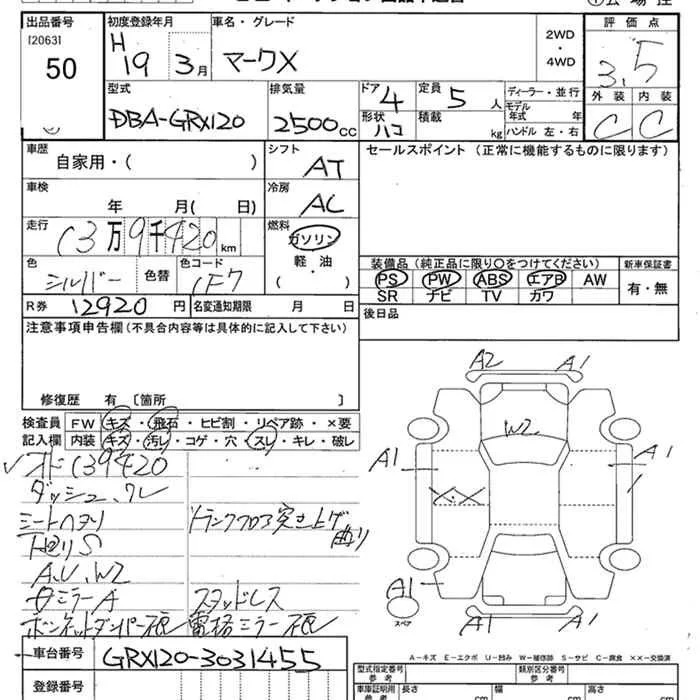 出品番号 初度登録年月 車名・グレード 2WD・4WD 評価点
[2063]
50 H19 3月 マークX 3.5
型式 排気量 ドア 4 定員 5人 ディーラー・並行 外装 内装
DBA-GRX120 2500cc 形状 ハコ 積載 kg モデル年式 年 C C
ハンドル 左・右
車歴 シフト セールスポイント(正常に機能するものに限ります)
自家用・( ) AT
車検 冷房
年 月(日) AC
走行 燃料
13万9千420km ガソリン
色 色コード 軽・油
シルバー 色替 1F7 ( )
装備品(純正品に限り○をつけてください) 新車保証書
PS PW ABS エアB AW 有・無
SR ナビ TV カワ
R券 12920円 名変通知期限 月 日 後日品
注意事項申告欄(不具合内容等は具体的に記入して下さい)
修復歴 有 [箇所 ]
検査員 FW キズ・飛石・ヒビ割・リペア跡・×要
記入欄 内装 キズ・汚レ・コゲ・穴・スレ・キレ・破レ
139420
ダッシュ
シートヘタリ トランクフロア突き上げ
曲り
A.U.W2
ミラーA スタッドレス
ボンネットダンパー 電格ミラー
A2 A1
W2
A1 A1
X.X
A1
スペア
A1 A1
A-キズ E-エクボ U-凹み W-補修跡 S-サビ C-腐食 ××-交換済
車台番号 GRX120-3031455
登録番号
型式指定番号 参考 類別区分番号 参考
車庫証明用 参考 長さ cm 幅 cm 高さ cm